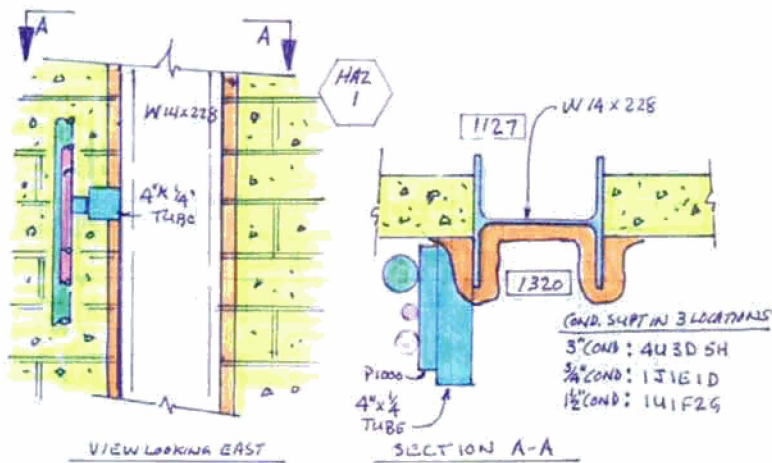 A
A
HAZ
1
W14x228
4"x¼"
TUBE
VIEW LOOKING EAST
1127
W14x228
1320
P1000
4"x¼
TUBE
SECTION A-A
COND. SUPT IN 3 LOCATIONS
3"COND: 4U3D5H
¾"COND: 1J1E1D
1½"COND: 1U1F2G